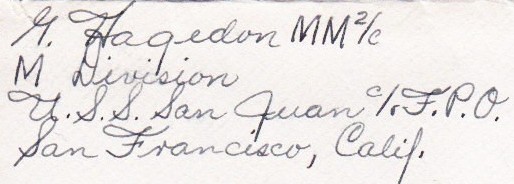 G. Hagedon MM 2/c
M Division
U.S.S. San Juan c/o F.P.O.
San Francisco, Calif.